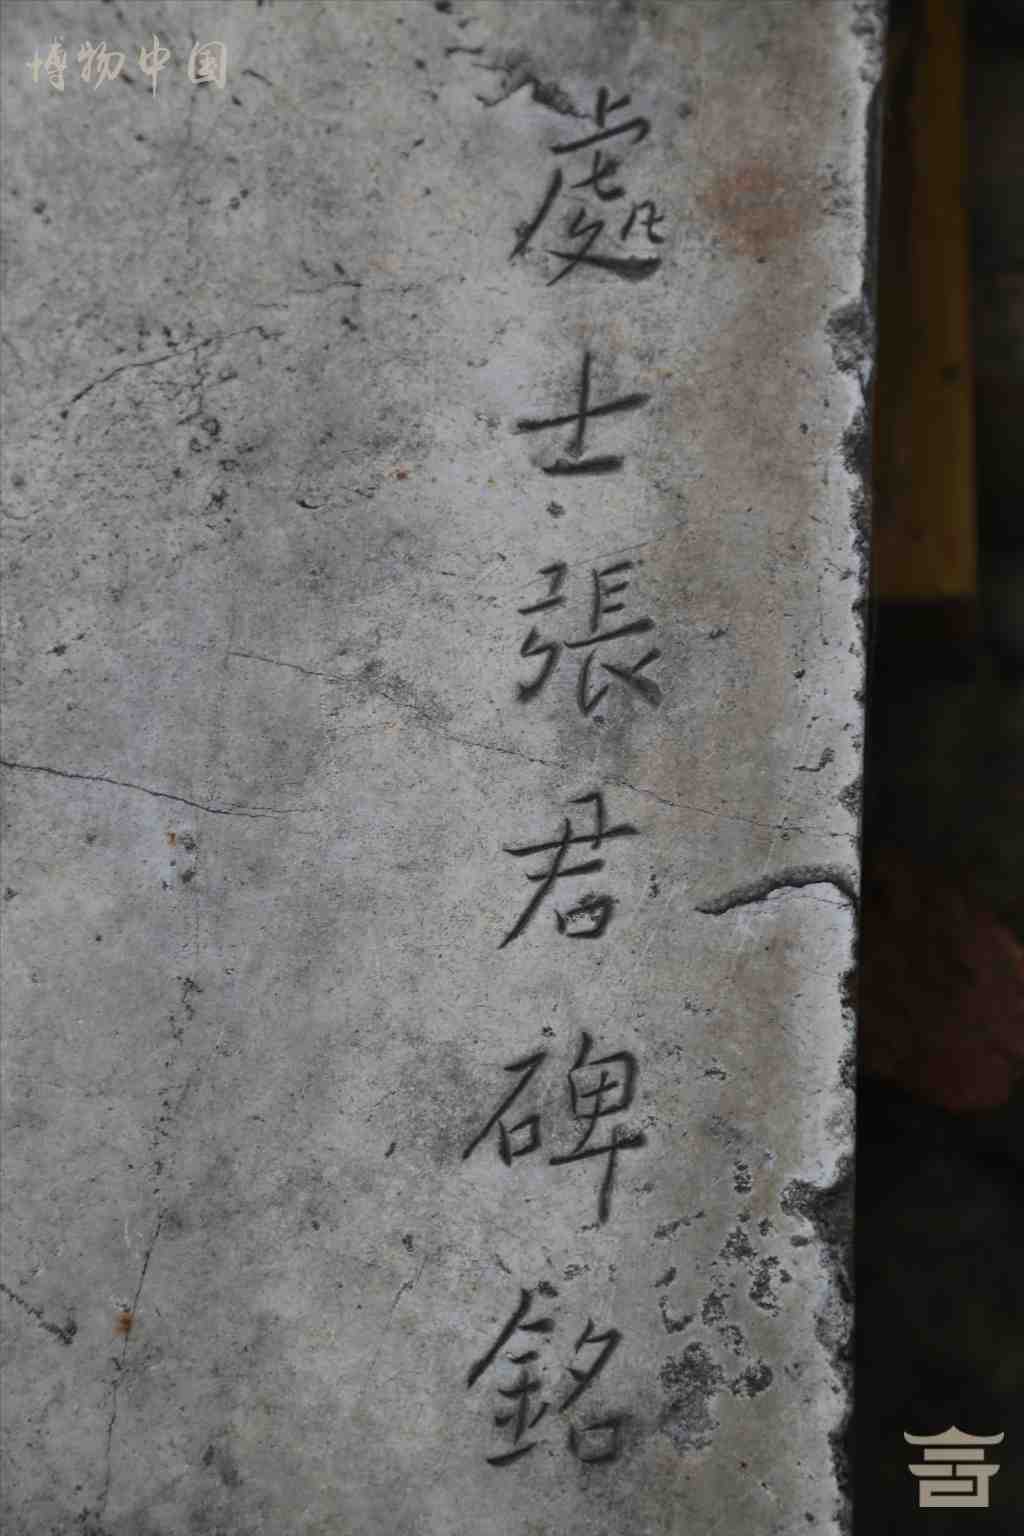 博物中国
處士張君碑銘